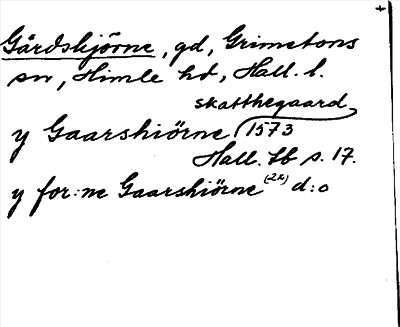 +
Gårdshjörne, gd, Grimetons
sn, Himle hd, Hall. l.
skatthegaard
y Gaarshiörne (1573
Hall. Lb s. 17.
y for:ne Gaarshiörne (2x) d:o